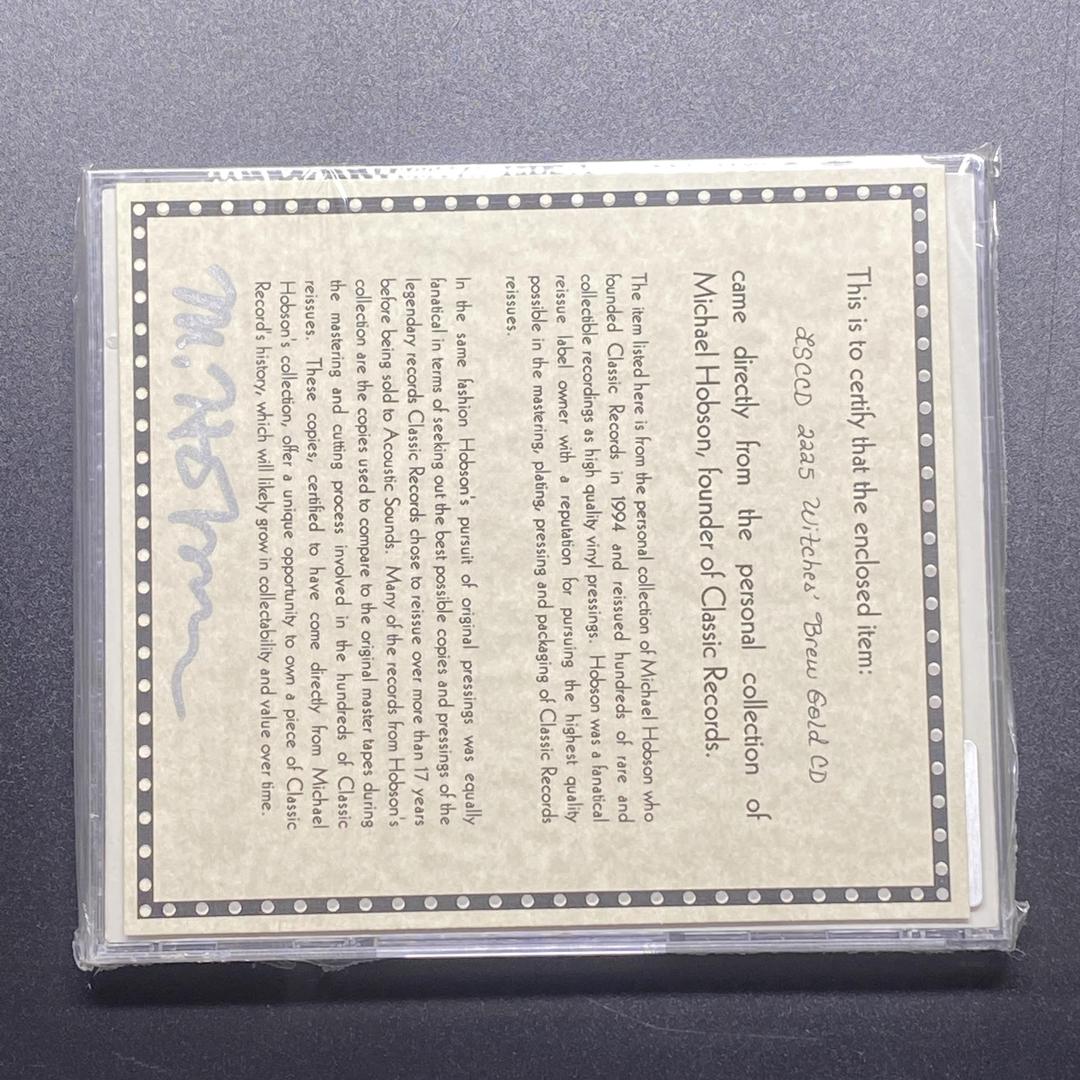 This is to certify that the enclosed item:
LSCCD 2225 Witches' Brew Gold CD
came directly from the personal collection of
Michael Hobson, founder of Classic Records.
The item listed here is from the personal collection of Michael Hobson who
founded Classic Records in 1994 and reissued hundreds of rare and
collectible recordings as high quality vinyl pressings. Hobson was a fanatical
reissue label owner with a reputation for pursuing the highest quality
possible in the mastering, plating, pressing and packaging of Classic Records
reissues.
In the same fashion Hobson's pursuit of original pressings was equally
fanatical in terms of seeking out the best possible copies and pressings of the
legendary records Classic Records chose to reissue over more than 17 years
before being sold to Acoustic Sounds. Many of the records from Hobson's
collection are the copies used to compare to the original master tapes during
the mastering and cutting process involved in the hundreds of Classic
reissues. These copies, certified to have come directly from Michael
Hobson's collection, offer a unique opportunity to own a piece of Classic
Record's history, which will likely grow in collectability and value over time.
M. Hobson